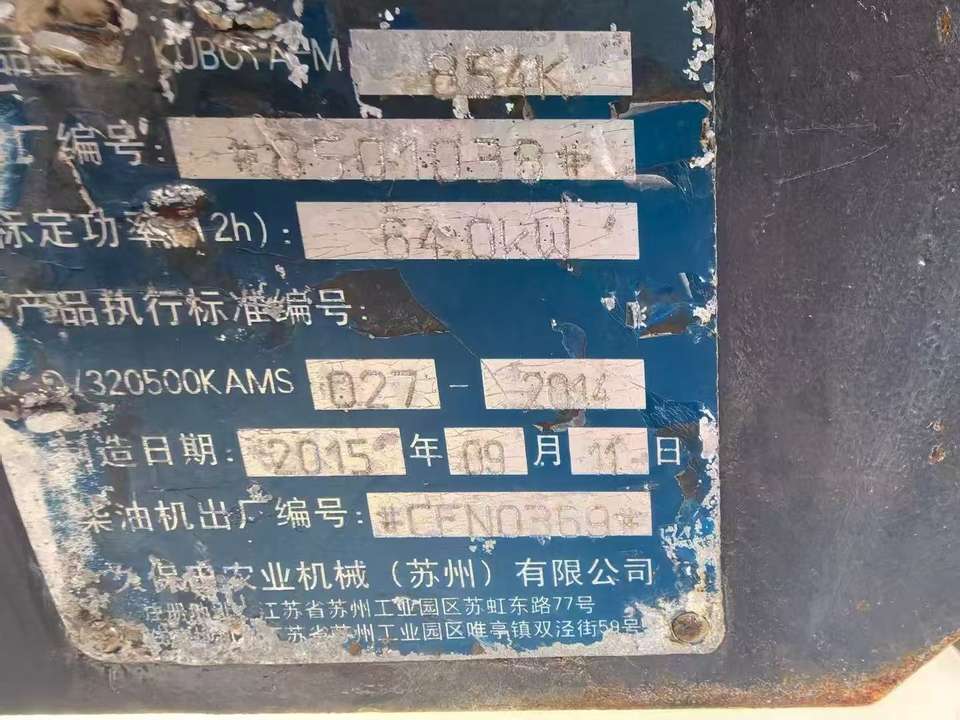 KUBOTA-M 854K
厂编号: *8501038*
标定功率(12h): 64.0kW
产品执行标准编号:
Q/320500KAMS 027 - 2014
造日期: 2015 年 09 月 11 日
柴油机出厂编号: *CFN0369*
久保田农业机械(苏州)有限公司
江苏省苏州工业园区苏虹东路77号
江苏省苏州工业园区唯亭镇双泾街59号